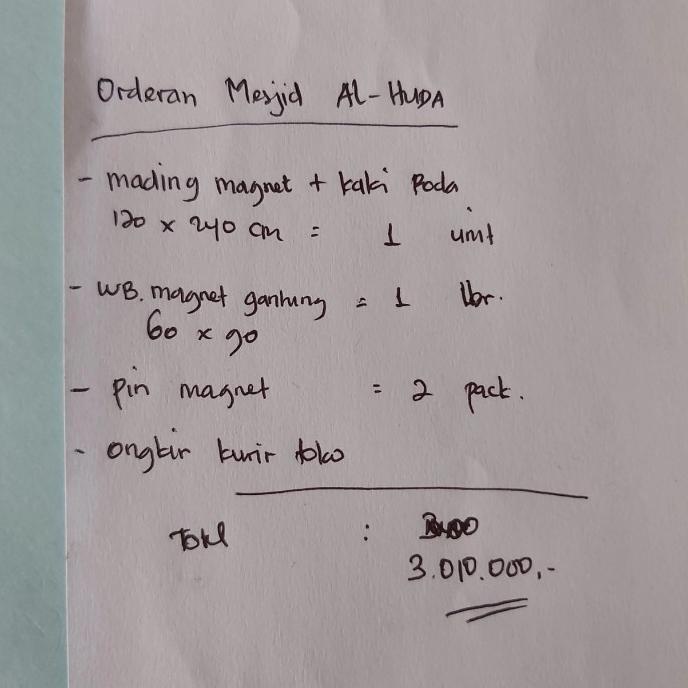 Orderan Mesjid AL-HUDA
- mading magnet + kaki Roda
120 x 240 cm = 1 unit
- WB. magnet gantung = 1 lbr.
60 x 90
- Pin magnet = 2 pack.
- ongkir kurir toko
Total :
3.010.000,-